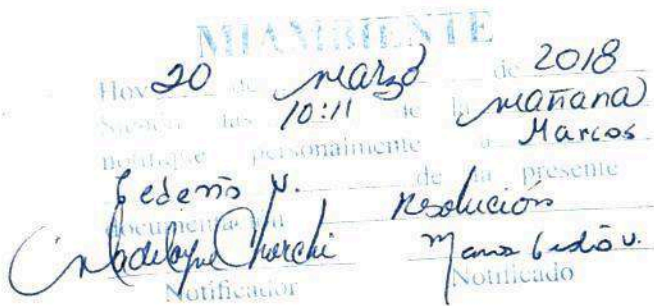 MIAMBIENTE
Hoy 20 de marzo de 2018
Siendo las 10:11 de la mañana
notifique personalmente a Marcos
Cedeño V. de la presente
documentación Resolución
Madelayne Chirchi Marcos Cedeño V.
Notificador Notificado